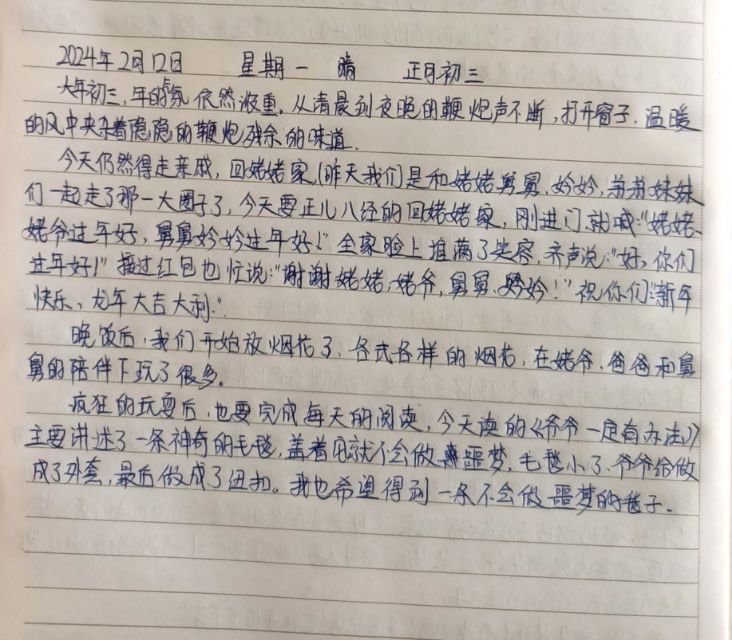 2024年2月12日 星期一 晴 正月初三
大年初三,年的氛依然浓重,从清晨到夜晚的鞭炮声不断,打开窗子,温暖
的风中夹杂着隐隐的鞭炮残余的味道.
今天仍然得走亲戚,回姥姥家,(昨天我们是和姥姥舅舅、妗妗,弟弟妹妹
们一起走了那一大圈子了,今天要正儿八经的回姥姥家,刚进门就喊:"姥姥、
姥爷过年好,舅舅妗妗过年好!"全家脸上堆满了笑容,齐声说:"好,你们
过年好!"接过红包也忙说:"谢谢姥姥,姥爷,舅舅、妗妗!"祝你们"新年
快乐、龙年大吉大利."
晚饭后,我们开始放烟花了、各式各样的烟花,在姥爷、爸爸和舅
舅的陪伴下玩了很多。
疯狂的玩耍后,也要完成每天的阅读,今天读的《爷爷一定有办法》
主要讲述了一条神奇的毛毯,盖着就不会做噩梦,毛毯小了,爷爷给做
成了外套,最后做成了纽扣。我也希望得到一条不会做噩梦的毯子.